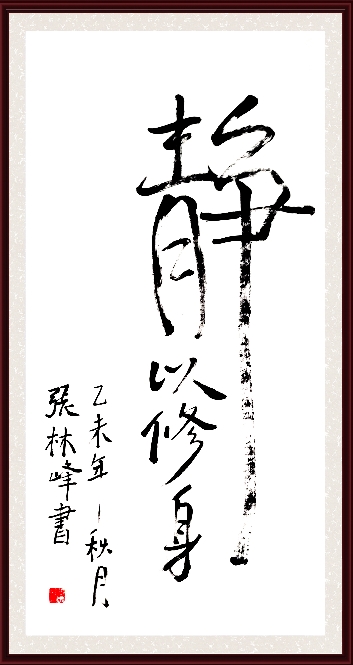 靜以修身
乙未年秋月
張林峰書